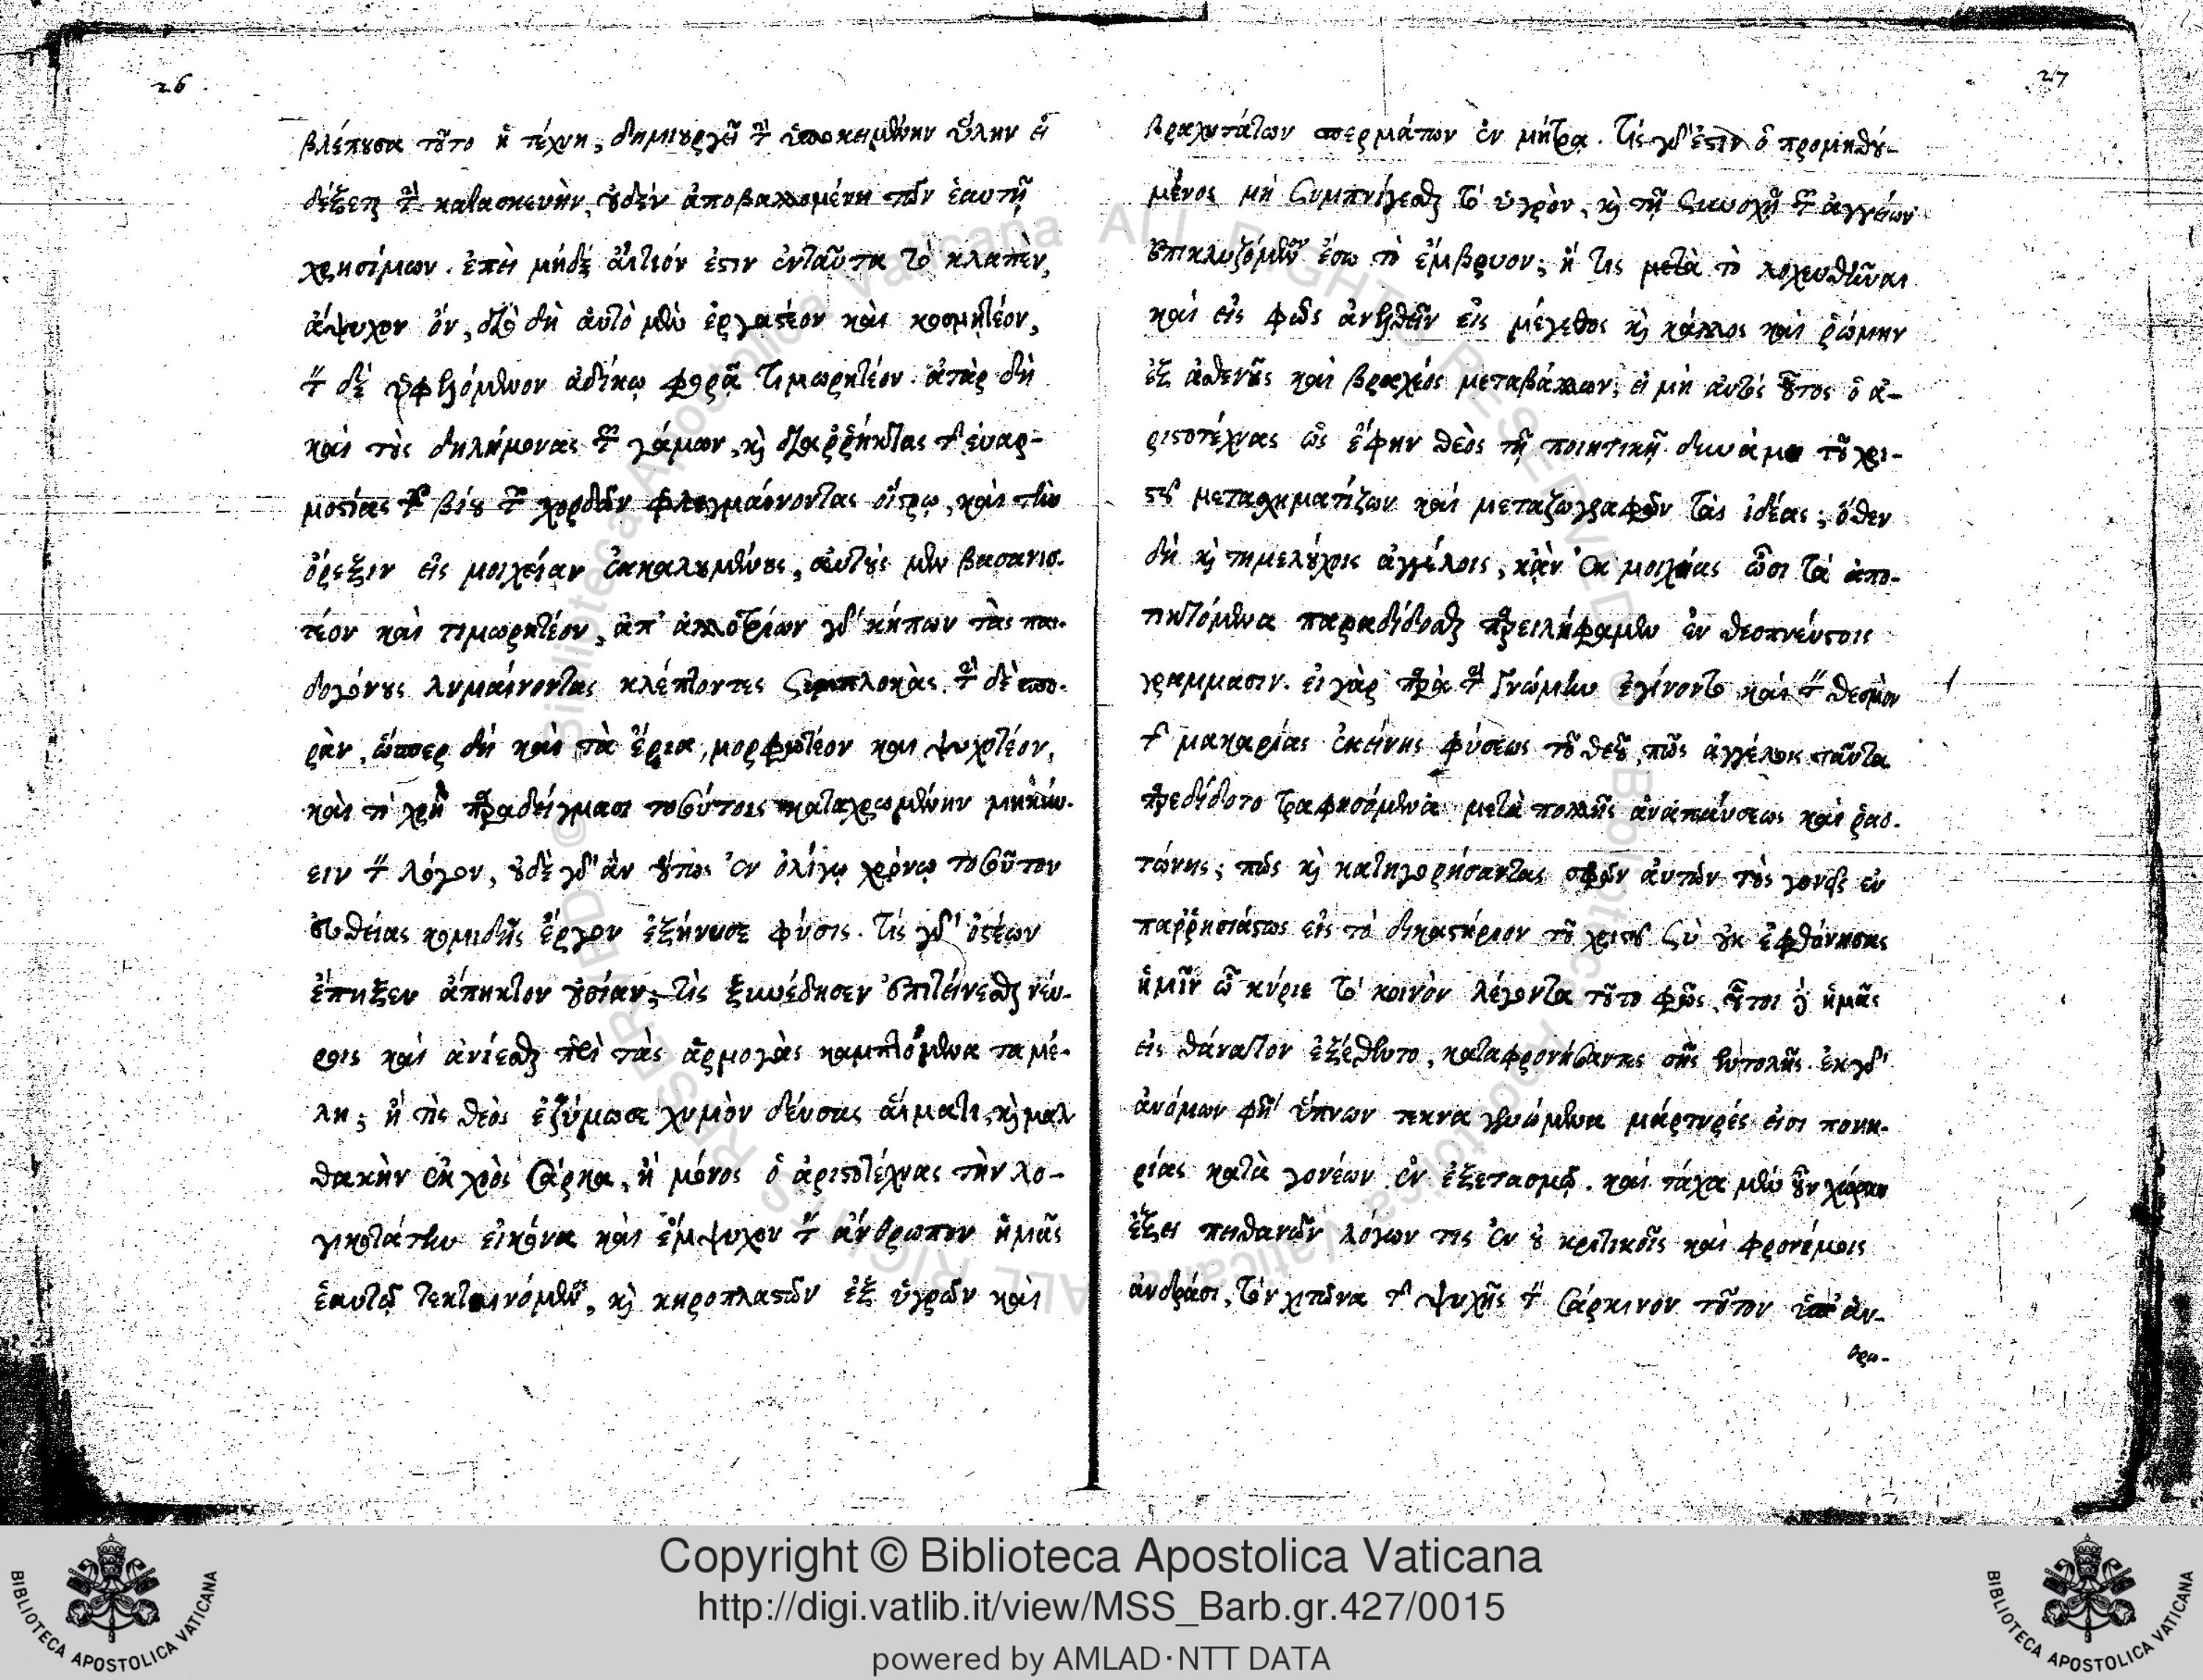 26
βλέπουσα τοῦτο ἡ τέχνη, δημιουργεῖ τὴν ὑποκειμένην ὕλην εἰ
δέξεται τὴν κατασκευὴν, οὐδὲν ἀποβαλλομένη τῶν ἑαυτῇ
χρησίμων. ἐπεὶ μηδὲ αἴτιόν ἐστιν ἐνταῦτα τὸ κλαπὲν,
ἄψυχον ὄν, διὸ δὴ αὐτὸ μὲν ἐργαστέον καὶ κοσμητέον,
τὸν δὲ ὑφελόμενον ἀδίκῳ φορᾷ τιμωρητέον. ἀτὰρ δὴ
καὶ τοὺς δηλήμονας τῶν γάμων, καὶ διαῤῥήκτας τῆς εὐαρ-
μοστίας τοῦ βίου τῶν χορδῶν φλεγμαίνοντας οἴστρῳ, καὶ τὴν
ὄρεξιν εἰς μοιχείαν ἐκκαλουμένους, αὐτοὺς μὲν βασανισ-
τέον καὶ τιμωρητέον, ἀπ' ἀλλοτρίων γὰρ κήπων τὰς παι-
δογόνους λυμαίνοντας κλέπτοντες συμπλοκὰς. τὴν δὲ σπο-
ρὰν, ὥσπερ δὴ καὶ τὰ ἔρια, μορφωτέον καὶ ψυχωτέον,
καὶ τί χρὴ παραδείγμασι τοσούτοις καταχρωμένην μηκύν-
ειν τὸν λόγον, οὐδὲ γὰρ ἂν οὕτως ἐν ὀλίγῳ χρόνῳ τοσοῦτον
συθείας κομιδῆς ἔργον ἐξήνυσε φύσις. τίς γὰρ ὀστέων
ἔπηξεν ἄπηκτον οὐσίαν; τίς ξυνέδησεν ἐπιτείνεσθαι νεύ-
ροις καὶ ἀνίεσθαι περὶ τὰς ἁρμογὰς καμπτόμενα τα μέ-
λη; ἢ τὶς θεὸς ἐζύμωσε χυμὸν δεύσας αἵματι, καὶ μαλ
θακὴν ἐκ χοὸς σάρκα, ἢ μόνος ὁ ἀριστοτέχνας τὴν λο-
γικοτάτην εἰκόνα καὶ ἔμψυχον τὸν ἄνθρωπον ἡμᾶς
ἑαυτῷ τεκταινόμενος, καὶ κηροπλαστῶν ἐξ ὑγρῶν καὶ
27
βραχυτάτων σπερμάτων ἐν μήτρᾳ. τίς γὰρ ἐστιν ὁ προμηθού-
μενος μὴ συμπνίγεσθαι τὸ ὑγρὸν, καὶ τῇ συνοχῇ τῶν ἀγγείων
ἐπικλυζόμενον ἔσω τὸ ἔμβρυον; ἤ τις μετὰ τὸ λοχευθῆναι
καὶ εἰς φῶς ἀνελθεῖν εἰς μέγεθος καὶ κάλλος καὶ ῥώμην
ἐξ ἀσθενοῦς καὶ βραχέος μεταβάλλων; εἰ μὴ αὐτὸς οὗτος ὁ ἀ-
ριστοτέχνας ὡς ἔφην θεὸς τῇ ποιητικῇ δυνάμει τοῦ χρι-
στοῦ μετασχηματίζων καὶ μεταζωγραφῶν τὰς ἰδέας; ὅθεν
δὴ καὶ τημελούχοις ἀγγέλοις, κᾂν ἐκ μοιχείας ὦσι τὰ ἀπο-
τικτόμενα παραδίδοσθαι παρειλήφαμεν ἐν θεοπνεύστοις
γραμμασιν. εἰ γὰρ παρὰ τὴν γνώμην ἐγίνοντο καὶ τὸν θεσμὸν
τῆς μακαρίας ἐκείνης φύσεως τοῦ θεοῦ, πῶς ἀγγέλοις ταῦτα
παρεδίδοτο τραφησόμενα μετὰ πολλῆς ἀναπαύσεως καὶ ῥασ-
τώνης; πῶς καὶ κατηγορήσαντας σφῶν αὐτῶν τοὺς γονεῖς εὐ
παῤῥησιάστως εἰς τὸ δικαστήριον τοῦ χριστοῦ σὺ οὐκ ἐφθόνησας
ἡμῖν ὦ κύριε τὸ κοινὸν λέγοντα τοῦτο φῶς, οὗτοι δὲ ἡμᾶς
εἰς θάνατον ἐξέθεντο, καταφρονήσαντες σῆς ἐντολῆς. ἐκ γὰρ
ἀνόμων φησὶν ὕπνων τεκνα γενώμενα μάρτυρές εἰσι πονη-
ρίας κατὰ γονέων ἐν ἐξετασμῷ. καὶ τάχα μὲν οὖν χώραν
ἕξει πιθανῶν λόγων τις ἐν οὐ κριτικοῖς καὶ φρονίμοις
ἀνδράσι, τὸν χιτῶνα τῆς ψυχῆς τὸν σάρκινον τοῦτον ὑπ' ἀν-
θρω-
Copyright © Biblioteca Apostolica Vaticana
http://digi.vatlib.it/view/MSS_Barb.gr.427/0015
powered by AMLAD·NTT DATA
BIBLIOTECA APOSTOLICA VATICANA
BIBLIOTECA APOSTOLICA VATICANA